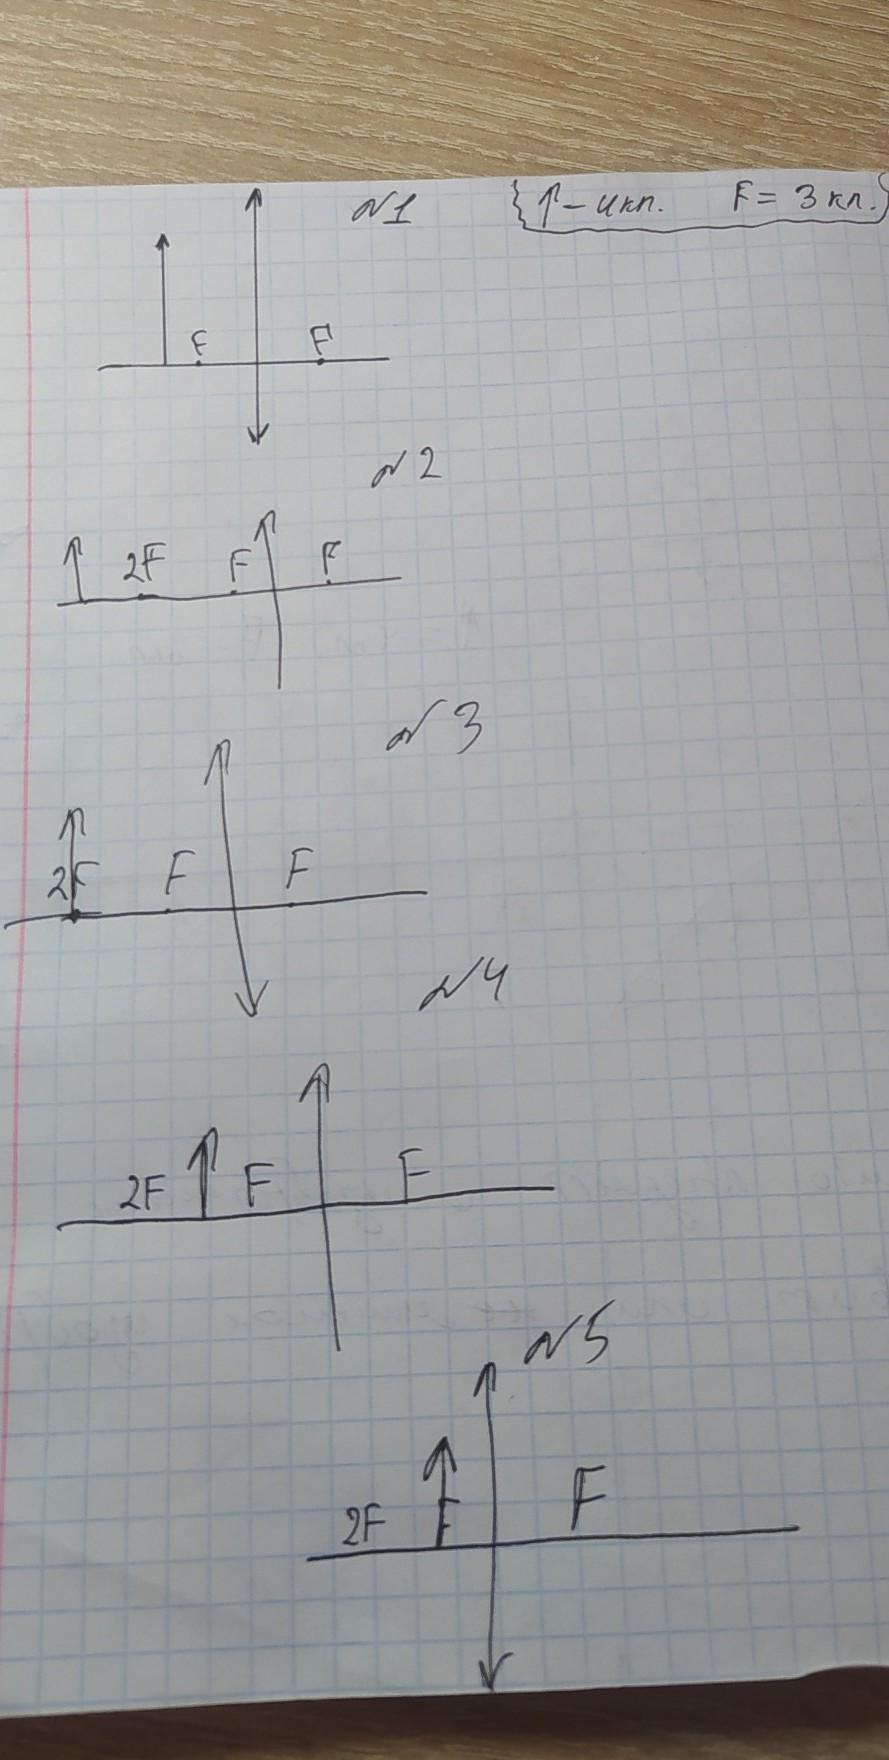 №1 {↑ – 4 кл. F = 3 кл.}
F F
№2
2F F F
№3
2F F F
№4
2F F F
№5
2F F F